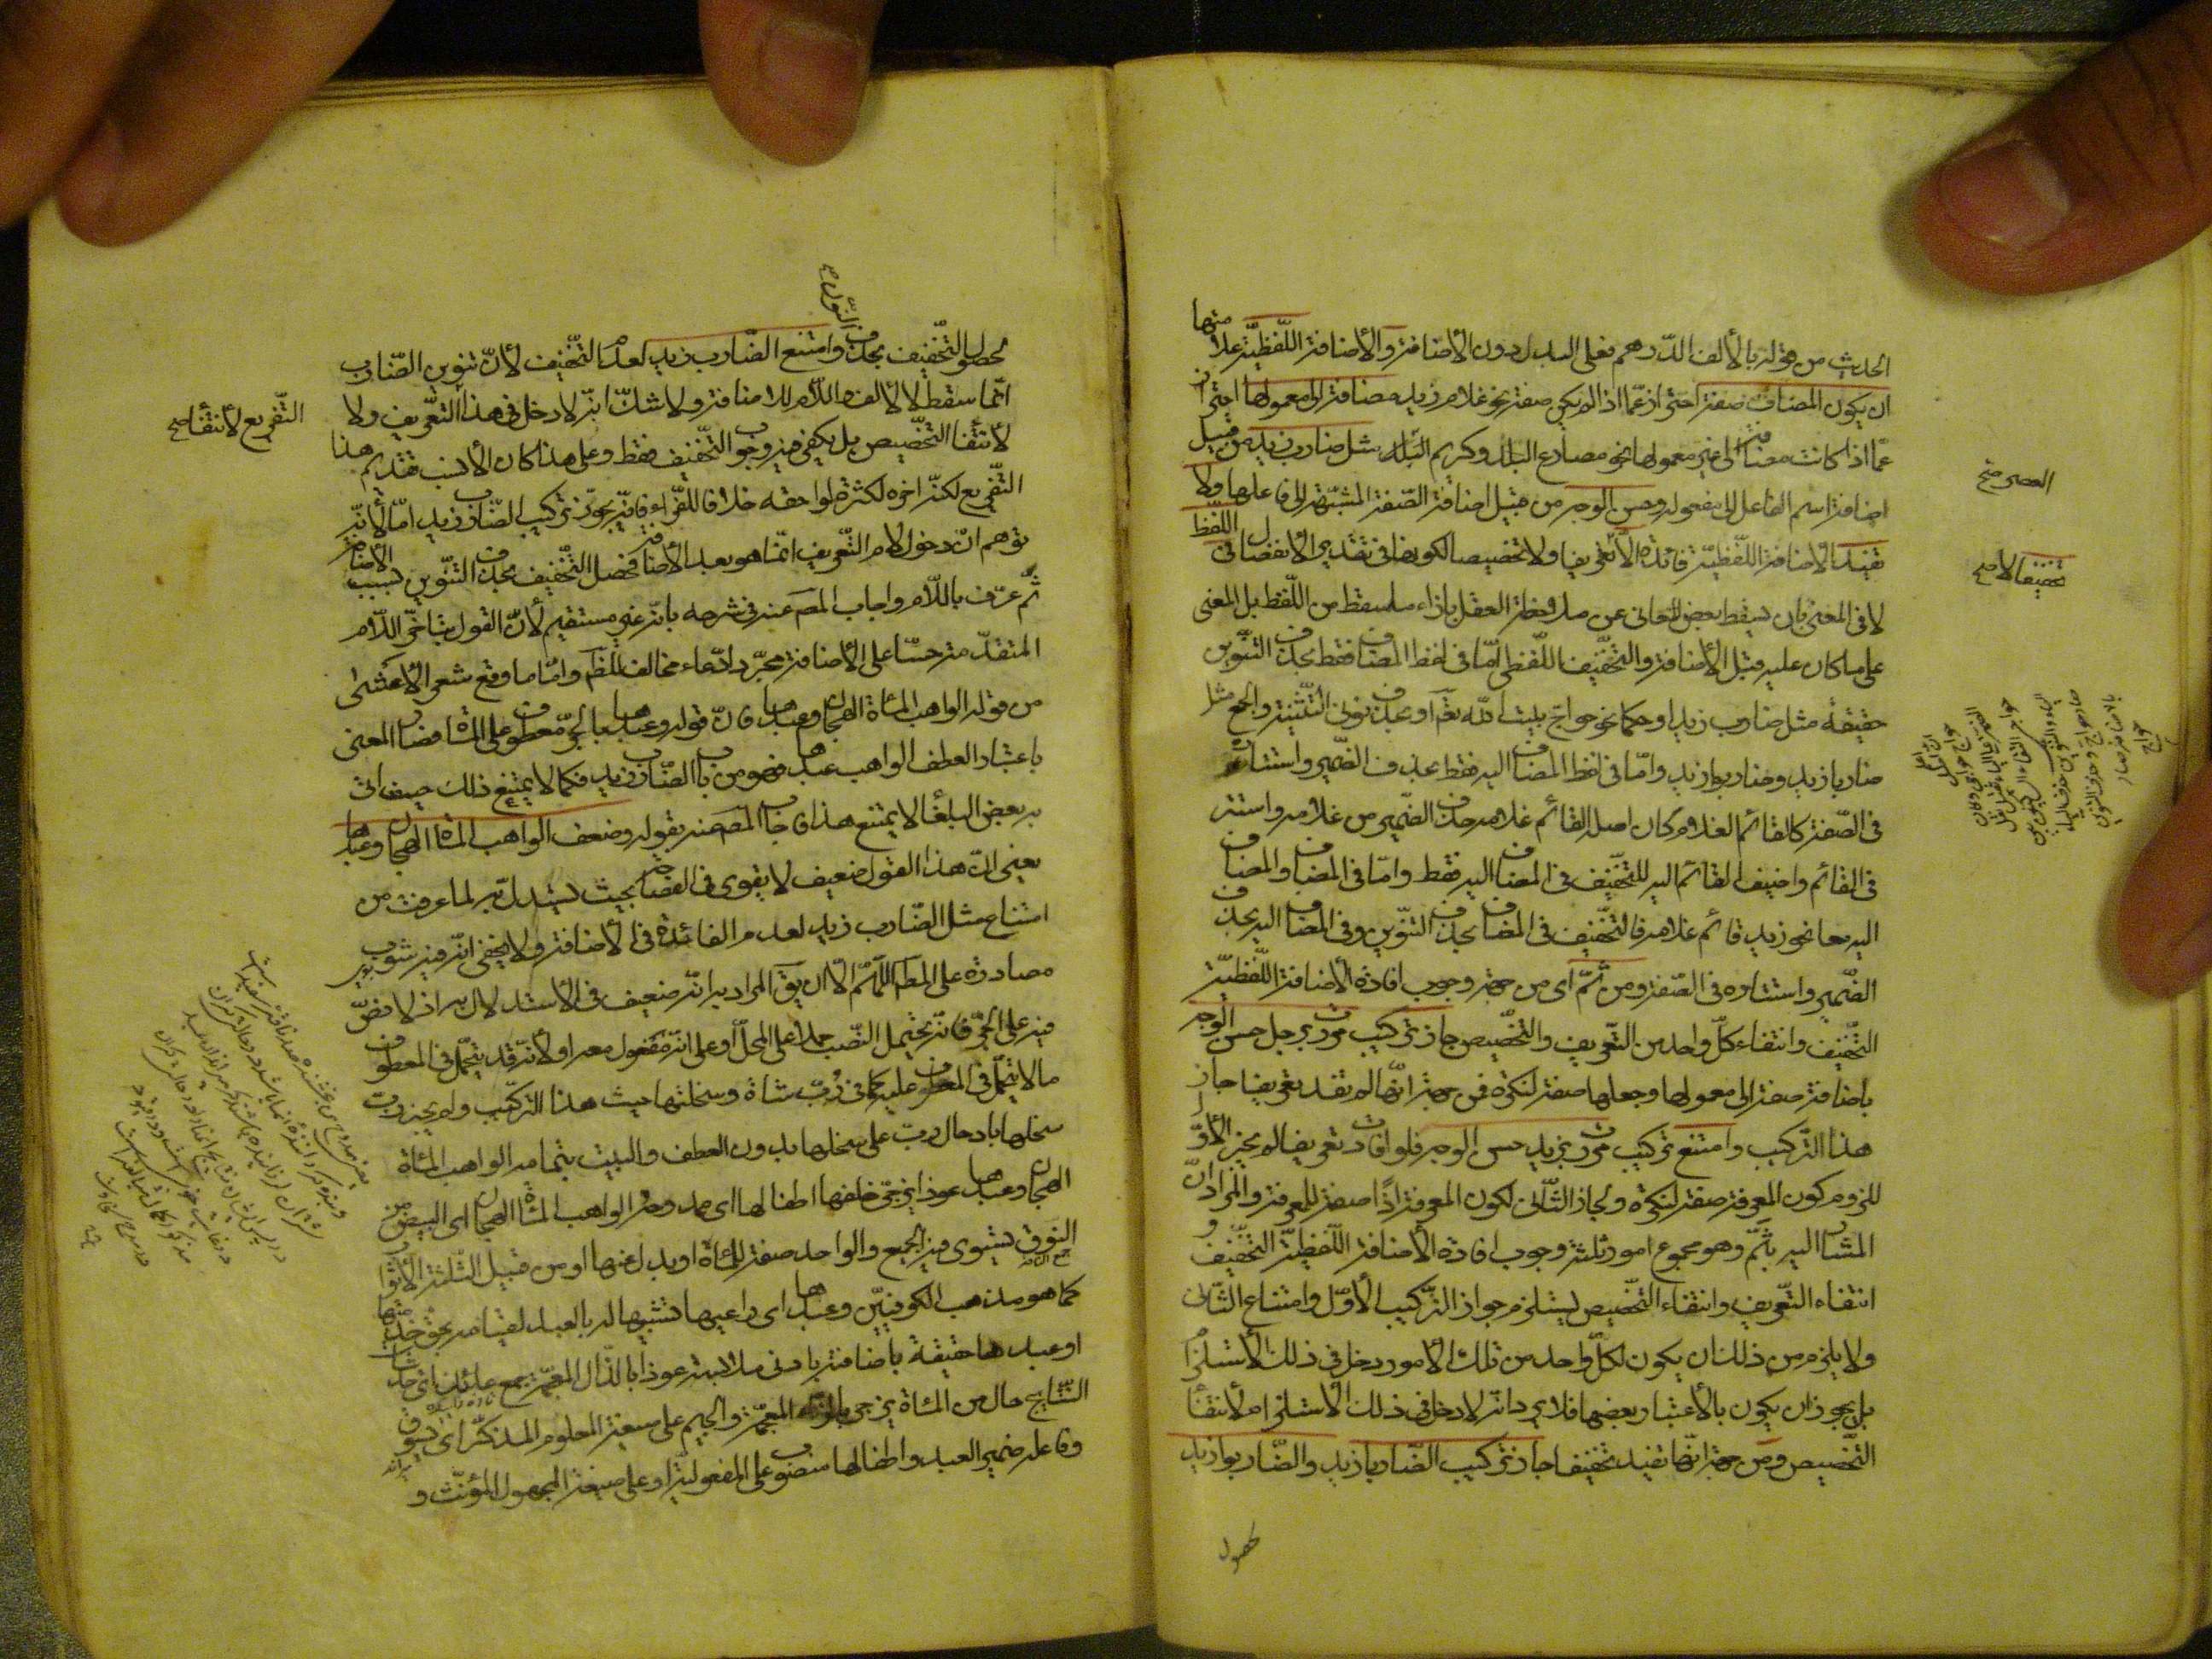 الحديث من قوله بالألف الدّرهم فعلى البدل دون الأضافة والأضافة اللّفظيّة علامتها
ان يكون المضاف صفة احترازعمّا اذا لم يكن صفة نحو غلام زيد مضافة الى معمولها احتراز
عمّا اذا كانت مضافة الى غير معمولها نحو مصارع البلد وكريم البلد مثل ضارب زيد من قبيل
اضافة اسم الفاعل الى مفعوله وحسن الوجه من قبيل اضافة الصّفة المشبّهة الى فاعلها ولا
تفيد الأضافة اللّفظيّة فائدة الّا تعريفا ولا تخصيصا لكونها فى تقدير الأنفصال فى اللّفظ
لا فى المعنى بان يسقط بعض المعانى عن ملاحظة العقل بازاء ما يسقط من اللّفظ بل المعنى
على ما كان عليه قبل الأضافة والتّخفيف اللّفظى امّا فى لفظ المضاف فقط بحذف التّنوين
حقيقة مثل ضارب زيد او حكما نحو حواجّ بيت اللّه او بحذف نونى التّثنية والجمع مثل
ضاربا زيد وضاربوا زيد وامّا فى لفظ المضاف اليه فقط بحذف الضّمير واستتاره
فى الصّفة كالقائم الغلام كان اصله القائم غلامه حذف الضّمير من غلامه واستتر
فى القائم واضيف القائم اليه للتّخفيف فى المضاف اليه فقط وامّا فى المضاف والمضاف
اليه معا نحو زيد قائم غلامه فالتّخفيف فى المضاف بحذف التّنوين وفى المضاف اليه بحذف
الضّمير واستتاره فى الصّفة ومن ثمّ اى من جهة وجوب افادة الأضافة اللّفظيّة
التّخفيف وانتفاء كلّ واحد من التّعريف والتّخصيص جاز تركيب مررت برجل حسن الوجه
باضافة صفة الى معمولها وجعلها صفة لنكرة فمن جهة انّها لم تفد تعريفا جاز
هذا التّركيب وامتنع تركيب مررت بزيد حسن الوجه فلو افادت تعريفا لم يجز الأوّل
للزوم كون المعرفة صفة لنكرة ولجاز الثّانى لكون المعرفة اذًا صفة للمعرفة والمراد انّ
المشار اليه بثمّ وهو مجموع امور ثلثة وجوب افادة الأضافة اللّفظيّة التّخفيف و
انتفاء التّعريف وانتفاء التّخصيص يستلزم جواز التّركيب الأوّل وامتناع الثّانى
ولا يلزم من ذلك ان يكون لكلّ واحد من تلك الأمور دخل فى ذلك الأستلزام
بل يجوز ان يكون بالأعتبار بعضها فلا يرد انّه لا دخل فى ذلك الأستلزام لأنتفاء
التّخصيص ومن جهة انّها تفيد تخفيفا جاز تركيب الضّاربا زيد والضّاربوا زيد
لحصول
تخفيفا الا صح
لحصول التّخفيف بحذف النّون وامتنع الضّارب زيد لعدم التّخفيف لأنّ تنوين الضّارب
انّما سقط لا لألف واللّام لا للاضافة ولا شكّ انّه لا دخل فى هذا التّعريف ولا
لأنتفاء التّخصيص بل يكفى فيه وجوب التّخفيف فقط وعلى هذا كان الأنسب تقديم هذا
التّفريع لكنّه اخره لكثرة لواحقه خلافا للفرّاء فانّه يجوّز تركيب الضّارب زيد امّا لأنّه
توهم انّ دخول لام التّعريف انّما هو بعد الأضافة فحصل التّخفيف بحذف التّنوين بسبب الأضافة
ثمّ عرّف باللّام واجاب المصـ عنه فى شرحه بانّه غير مستقيم لأنّ القول بتاخّر اللّام
المتقدّمة حسّا على الأضافة مجرّد ادّعاء مخالف للظّاهر وامّا ما وقع شعر الأعشى
من قوله الواهب المائة الهجان وعبدها فانّ قوله وعبدها بالجرّ معطوف على المائة فصار المعنى
باعتبار العطف الواهب عبدها فهو من باب الضّارب زيد فكما لا يمتنع ذلك حيث اتى
به بعض البلغاء لا يمتنع هذا فاجاب المصـ عنه بقوله وضعف الواهب المائة الهجان وعبدها
يعنى انّ هذا القول ضعيف لا يقوى فى الفصاحة بحيث يستدلّ به لما عرفت من
امتناع مثل الضّارب زيد لعدم الفائدة فى الأضافة ولا يخفى انّه فيه شوب
مصادرة على المط اللّهمّ الّا ان يقـ المراد به انّه ضعيف فى الأستدلال به اذ لا نصّ
فيه على الجرّ فانّه يحتمل النّصب حملا على المحلّ او على انّه مفعول معه او لأنّه قد يتحمّل فى المعطوف
ما لا يتحمّل فى المعطوف عليه كما فى ربّ شاة وسخلتها حيث هذا التّركيب ولم يجز ربّ
سخلتها بادخال ربّ على سخلتها بدون العطف والبيت بتمامه الواهب المائة
الهجان وعبدها عوذا يزجّى خلفها اطفالها اى ممدوحه الواهب المائة الهجان اى البيض من
النّوق يستوى فيه الجمع والواحد صفة للمائة او بدل عنها او من قبيل الثّلثة الأثواب
كما هو مذهب الكوفيّين وعبدها اى راعيها تشبيها له بالعبد لقيامه بحقّ خدمتها
او عبدها حقيقة باضافته بادنى ملابسة عوذا بالذّال المعجمة جمع عائذ اى حديثات
النّتاج حال من المائة يزجى بالزّاء المعجمة والجيم على صيغة المعلوم المذكّر اى يسوق
وفاعله ضمير العبد واطفالها منصوب على المفعولية او على صيغة المجهول المؤنّث و
التّفريع لأنتفاء صح